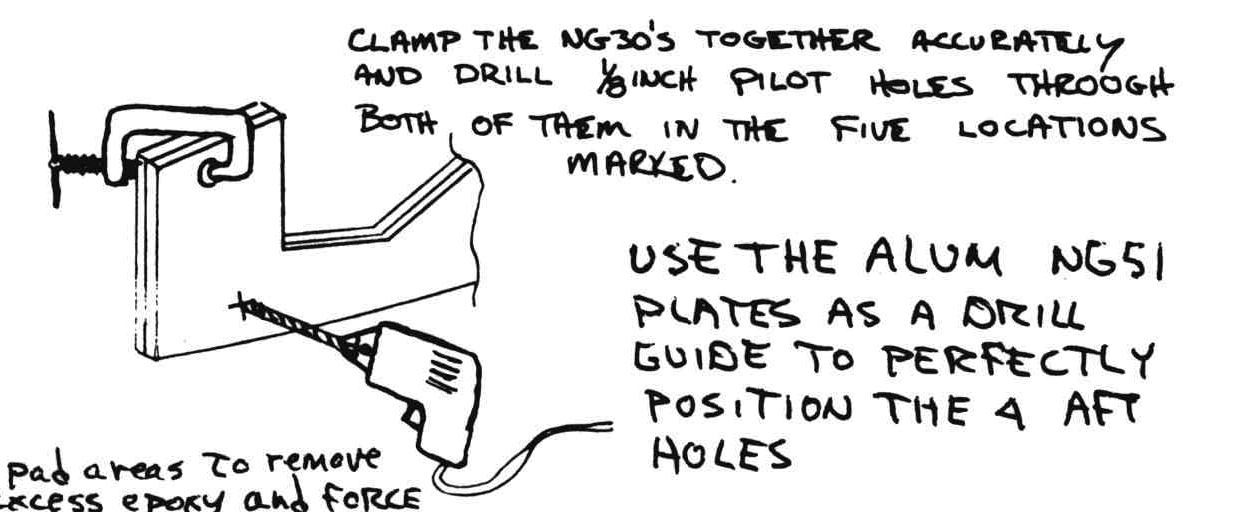 CLAMP THE NG30'S TOGETHER ACCURATELY
AND DRILL 1/8 INCH PILOT HOLES THROUGH
BOTH OF THEM IN THE FIVE LOCATIONS
MARKED.
USE THE ALUM NG51
PLATES AS A DRILL
GUIDE TO PERFECTLY
POSITION THE 4 AFT
HOLES
pad areas to remove
excess epoxy and FORCE